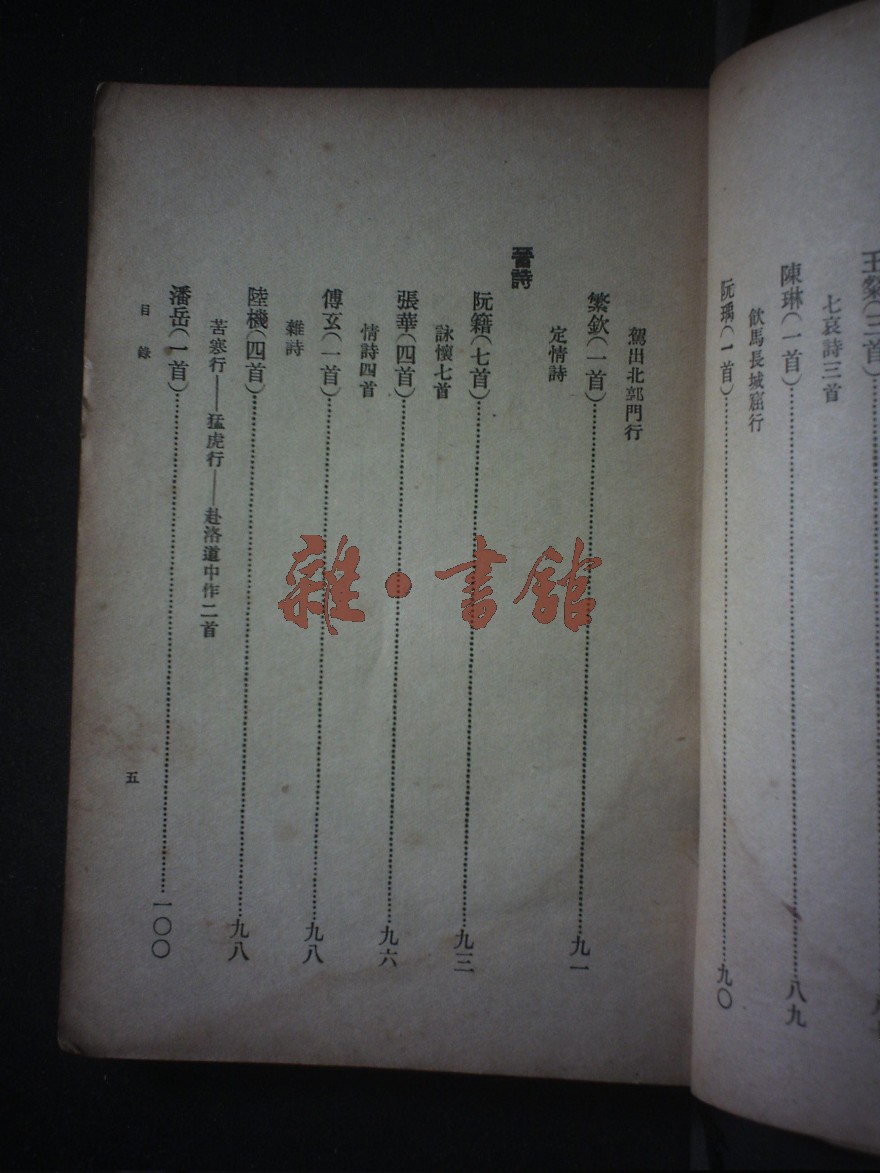 王粲（三首）
七哀詩三首
陳琳（一首）……八九
飲馬長城窟行
阮瑀（一首）……九〇
駕出北郭門行
繁欽（一首）……九一
定情詩
晉詩
阮籍（七首）……九三
詠懷七首
張華（四首）……九六
情詩四首
傅玄（一首）……九八
雜詩
陸機（四首）……九八
苦寒行——猛虎行——赴洛道中作二首
潘岳（一首）……一〇〇
目錄
五
雜·書館